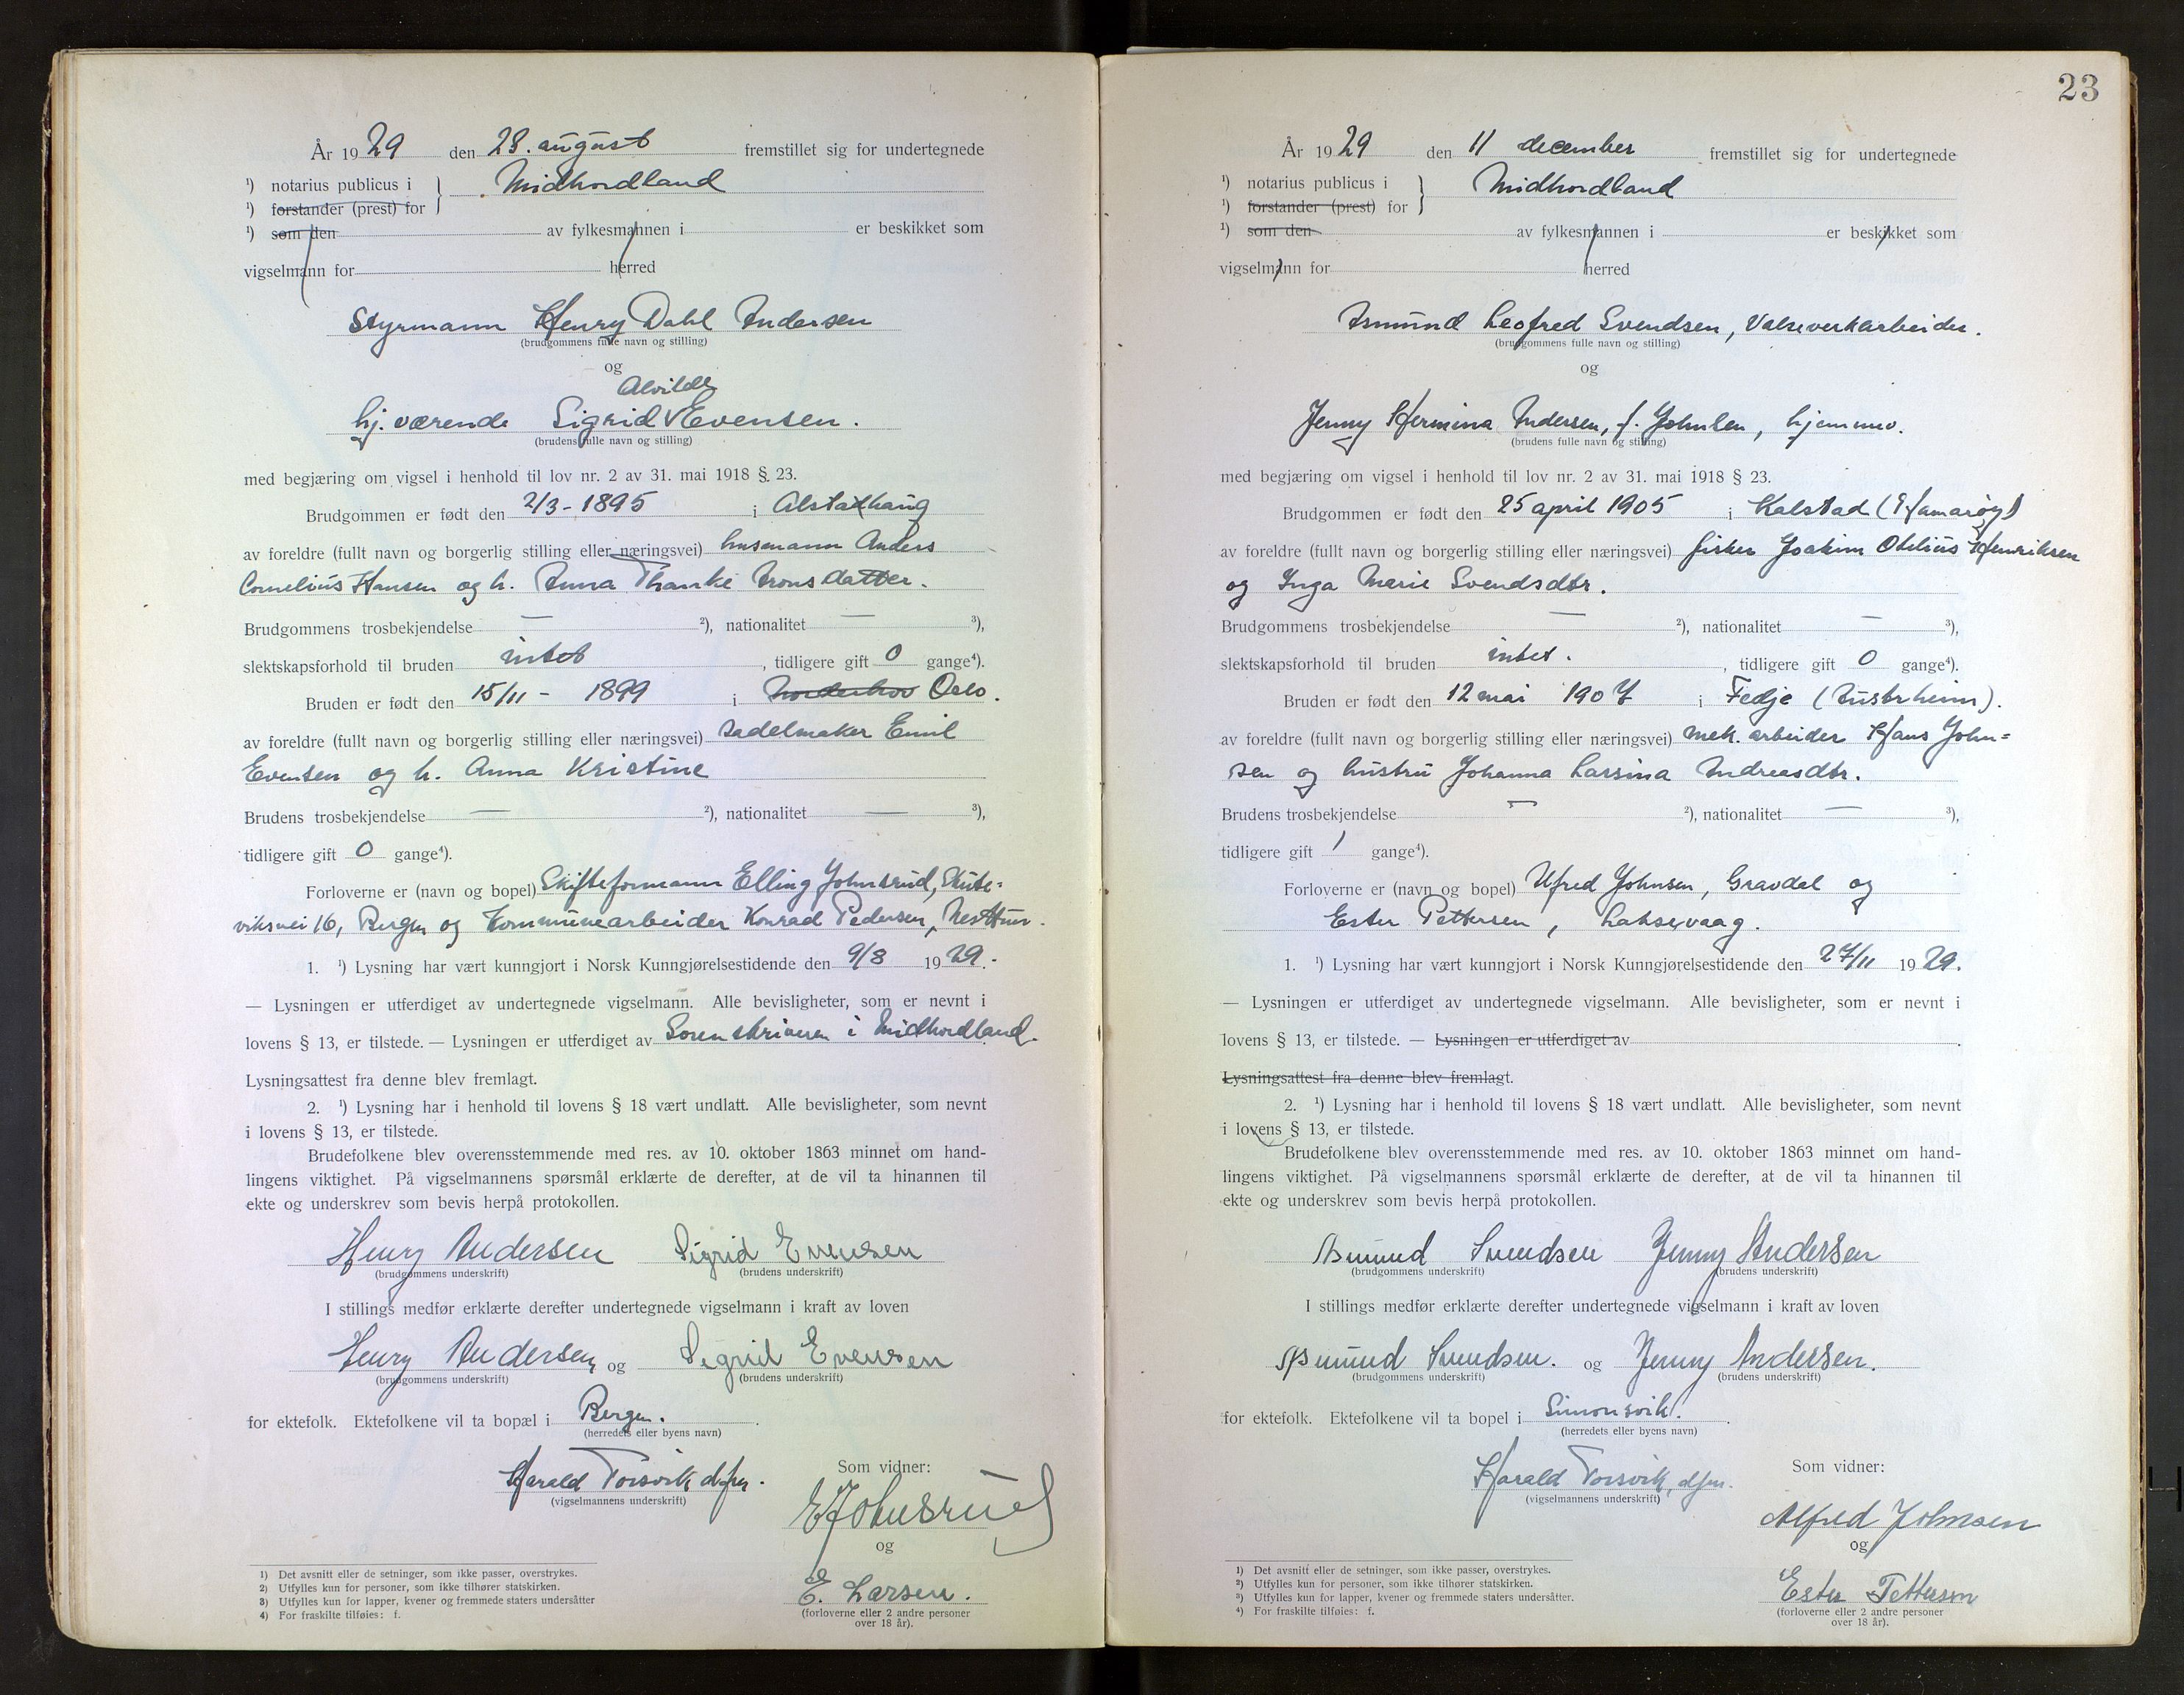 År 1929 den 28. august fremstillet sig for undertegnede
¹) notarius publicus i } Midhordland
¹) forstander (prest) for
¹) som den av fylkesmannen i er beskikket som
vigselmann for herred
Styrmann Henry Dahl Andersen
(brudgommens fulle navn og stilling)
og
Alvilde
hj. værende Sigrid V Evensen.
(brudens fulle navn og stilling)
med begjæring om vigsel i henhold til lov nr. 2 av 31. mai 1918 § 23.
Brudgommen er født den 2/3 - 1895 i Alstahaug
av foreldre (fullt navn og borgerlig stilling eller næringsvei) husmann Anders
Cornelius Hansen og h. Anna Thanke Aronsdatter.
Brudgommens trosbekjendelse — ²), nationalitet — ³),
slektskapsforhold til bruden intet, tidligere gift 0 gange⁴).
Bruden er født den 15/11 - 1899 i Norderhov Oslo.
av foreldre (fullt navn og borgerlig stilling eller næringsvei) sadelmaker Emil
Evensen og h. Anna Kristine
Brudens trosbekjendelse — ²), nationalitet — ³),
tidligere gift 0 gange⁴).
Forloverne er (navn og bopel) Skifteformann Elling Johnsrud, Skute-
viksvei 16, Bergen og Kommunearbeider Konrad Pedersen, Nesttun.
1. ¹) Lysning har vært kunngjort i Norsk Kunngjørelsestidende den 9/8 1929.-
— Lysningen er utferdiget av undertegnede vigselmann. Alle bevisligheter, som er nevnt i
lovens § 13, er tilstede. — Lysningen er utferdiget av Sorenskriveren i Midhordland.
Lysningsattest fra denne blev fremlagt.
2. ¹) Lysning har i henhold til lovens § 18 vært undlatt. Alle bevisligheter, som nevnt
i lovens § 13, er tilstede.
Brudefolkene blev overensstemmende med res. av 10. oktober 1863 minnet om hand-
lingens viktighet. På vigselmannens spørsmål erklærte de derefter, at de vil ta hinannen til
ekte og underskrev som bevis herpå protokollen.
Henry Andersen Sigrid Evensen
(brudgommens underskrift) (brudens underskrift)
I stillings medfør erklærte derefter undertegnede vigselmann i kraft av loven
Henry Andersen og Sigrid Evensen
(brudgommens underskrift) (brudens underskrift)
for ektefolk. Ektefolkene vil ta bopæl i Bergen.
(herredets eller byens navn)
Harald Torsvik dfm.
(vigselmannens underskrift)
Som vidner:
E Johnsrud
og
E. Larsen.
(forloverne eller 2 andre personer
over 18 år).
1) Det avsnitt eller de setninger, som ikke passer, overstrykes.
2) Utfylles kun for personer, som ikke tilhører statskirken.
3) Utfylles kun for lapper, kvener og fremmede staters undersåtter
4) For fraskilte tilføies: f.
23
År 1929 den 11 december fremstillet sig for undertegnede
¹) notarius publicus i } Midhordland
¹) forstander (prest) for
¹) som den av fylkesmannen i er beskikket som
vigselmann for herred
Asmund Leofred Svendsen, Valseverkarbeider.
(brudgommens fulle navn og stilling)
og
Jenny Hermina Andersen, f. Johnsen, hjemmev.
(brudens fulle navn og stilling)
med begjæring om vigsel i henhold til lov nr. 2 av 31. mai 1918 § 23.
Brudgommen er født den 25 april 1905 i Kalstad (Hamarøy)
av foreldre (fullt navn og borgerlig stilling eller næringsvei) fisker Joakim Otelius Henriksen
og Inga Marie Svendsdtr.
Brudgommens trosbekjendelse — ²), nationalitet — ³),
slektskapsforhold til bruden intet., tidligere gift 0 gange⁴).
Bruden er født den 12 mai 1907 i Fedje (Austrheim).
av foreldre (fullt navn og borgerlig stilling eller næringsvei) mek. arbeider Hans John=
sen og hustru Johanna Larsina Andreasdtr.
Brudens trosbekjendelse — ²), nationalitet — ³),
tidligere gift 1 gange⁴).
Forloverne er (navn og bopel) Alfred Johnsen, Gravdal og
Ester Pettersen, Laksevaag.
1. ¹) Lysning har vært kunngjort i Norsk Kunngjørelsestidende den 27/11 1929.
— Lysningen er utferdiget av undertegnede vigselmann. Alle bevisligheter, som er nevnt i
lovens § 13, er tilstede. — Lysningen er utferdiget av
Lysningsattest fra denne blev fremlagt.
2. ¹) Lysning har i henhold til lovens § 18 vært undlatt. Alle bevisligheter, som nevnt
i lovens § 13, er tilstede.
Brudefolkene blev overensstemmende med res. av 10. oktober 1863 minnet om hand-
lingens viktighet. På vigselmannens spørsmål erklærte de derefter, at de vil ta hinannen til
ekte og underskrev som bevis herpå protokollen.
Asmund Svendsen Jenny Andersen
(brudgommens underskrift) (brudens underskrift)
I stillings medfør erklærte derefter undertegnede vigselmann i kraft av loven
Asmund Svendsen. og Jenny Andersen.
(brudgommens underskrift) (brudens underskrift)
for ektefolk. Ektefolkene vil ta bopel i Simonsvik.
(herredets eller byens navn)
Harald Torsvik, dfm.
(vigselmannens underskrift)
Som vidner:
Alfred Johnsen
og
Ester Pettersen
(forloverne eller 2 andre personer
over 18 år).
1) Det avsnitt eller de setninger, som ikke passer, overstrykes.
2) Utfylles kun for personer, som ikke tilhører statskirken.
3) Utfylles kun for lapper, kvener og fremmede staters undersåtter.
4) For fraskilte tilføies: f.